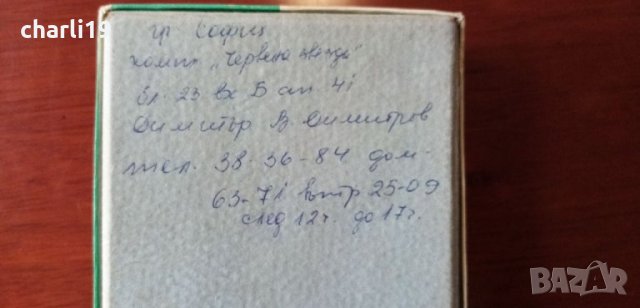 charli19
гр София
компл "Червена звезда"
бл. 23 вх Б ап 41
Димитър В. Димитров
тел. 38-36-84 дом-
63-71 вътр 25-09
след 12ч. до 17г.
BAZAR